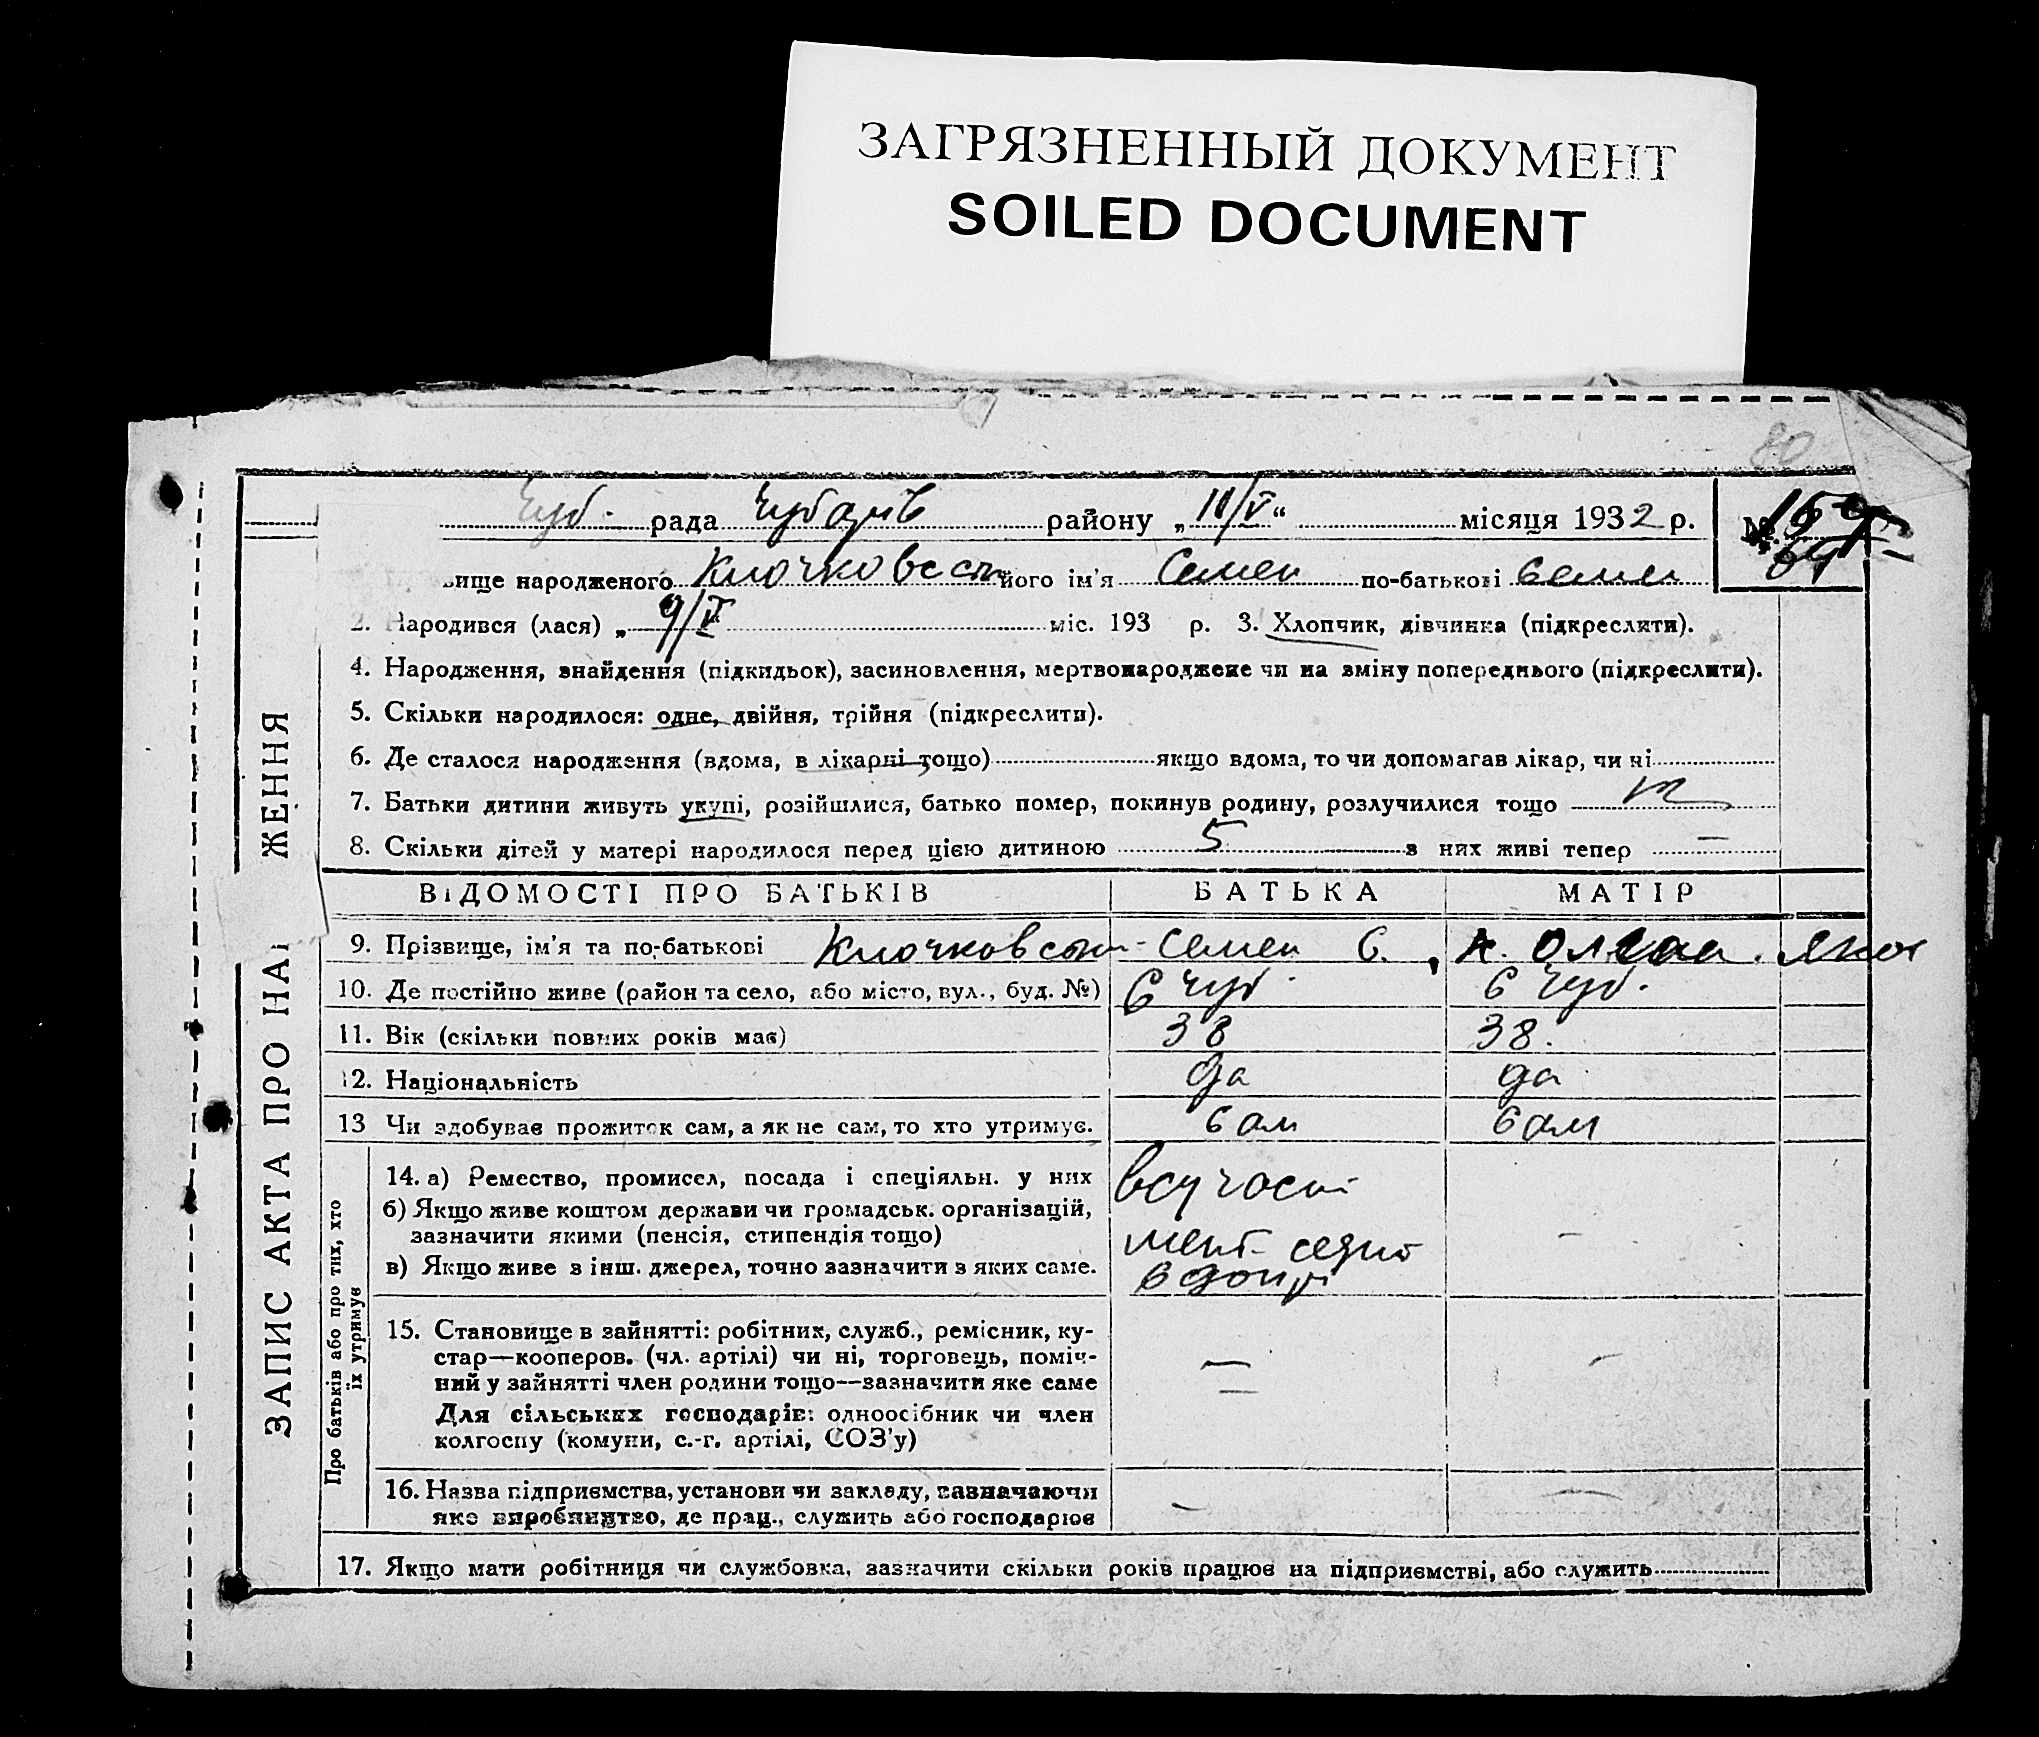 ЗАГРЯЗНЕННЫЙ ДОКУМЕНТ
SOILED DOCUMENT
80
Чуб. рада Чубарів району „11/V“ місяця 1932 р. №
вище народженого Клочковськ його ім'я Семен по-батькові Семен
2. Народився (лася) „9/V міс. 193 р. 3. Хлопчик, дівчинка (підкреслити).
4. Народження, знайдення (підкидьок), засиновлення, мертвонароджене чи на зміну попереднього (підкреслити).
5. Скільки народилося: одне, двійня, трійня (підкреслити).
6. Де сталося народження (вдома, в лікарні тощо) якщо вдома, то чи допомагав лікар, чи ні
7. Батьки дитини живуть укупі, розійшлися, батько помер, покинув родину, розлучилися тощо
8. Скільки дітей у матері народилося перед цією дитиною 5 з них живі тепер —
ЗАПИС АКТА ПРО НА ЖЕННЯ
ВІДОМОСТІ ПРО БАТЬКІВ БАТЬКА МАТІР
9. Прізвище, ім'я та по-батькові Клочковськ Семен С. К. Олена Яков
10. Де постійно живе (район та село, або місто, вул., буд. №) с Чуб. с Чуб.
11. Вік (скільки повних років має) 38 38.
12. Національність да да
13 Чи здобуває прожиток сам, а як не сам, то хто утримує. сам сам
Про батьків або про тих, хто
їх утримує
14. а) Ремество, промисел, посада і спеціяльн. у них
б) Якщо живе коштом держави чи громадськ. організацій,
зазначити якими (пенсія, стипендія тощо)
в) Якщо живе з інш. джерел, точно зазначити з яких саме.
—
15. Становище в зайнятті: робітник, служб., ремісник, ку-
стар—кооперов. (чл. артілі) чи ні, торговець, поміч-
ний у зайнятті член родини тощо—зазначити яке саме
Для сільських господарів: одноосібник чи член
колгоспу (комуни, с.-г. артілі, СОЗ'у)
— —
16. Назва підприємства, установи чи закладу, зазначаючи
яке виробництво, де прац., служить або господарює
— —
17. Якщо мати робітниця чи службовка, зазначити скільки років працює на підприємстві, або служить